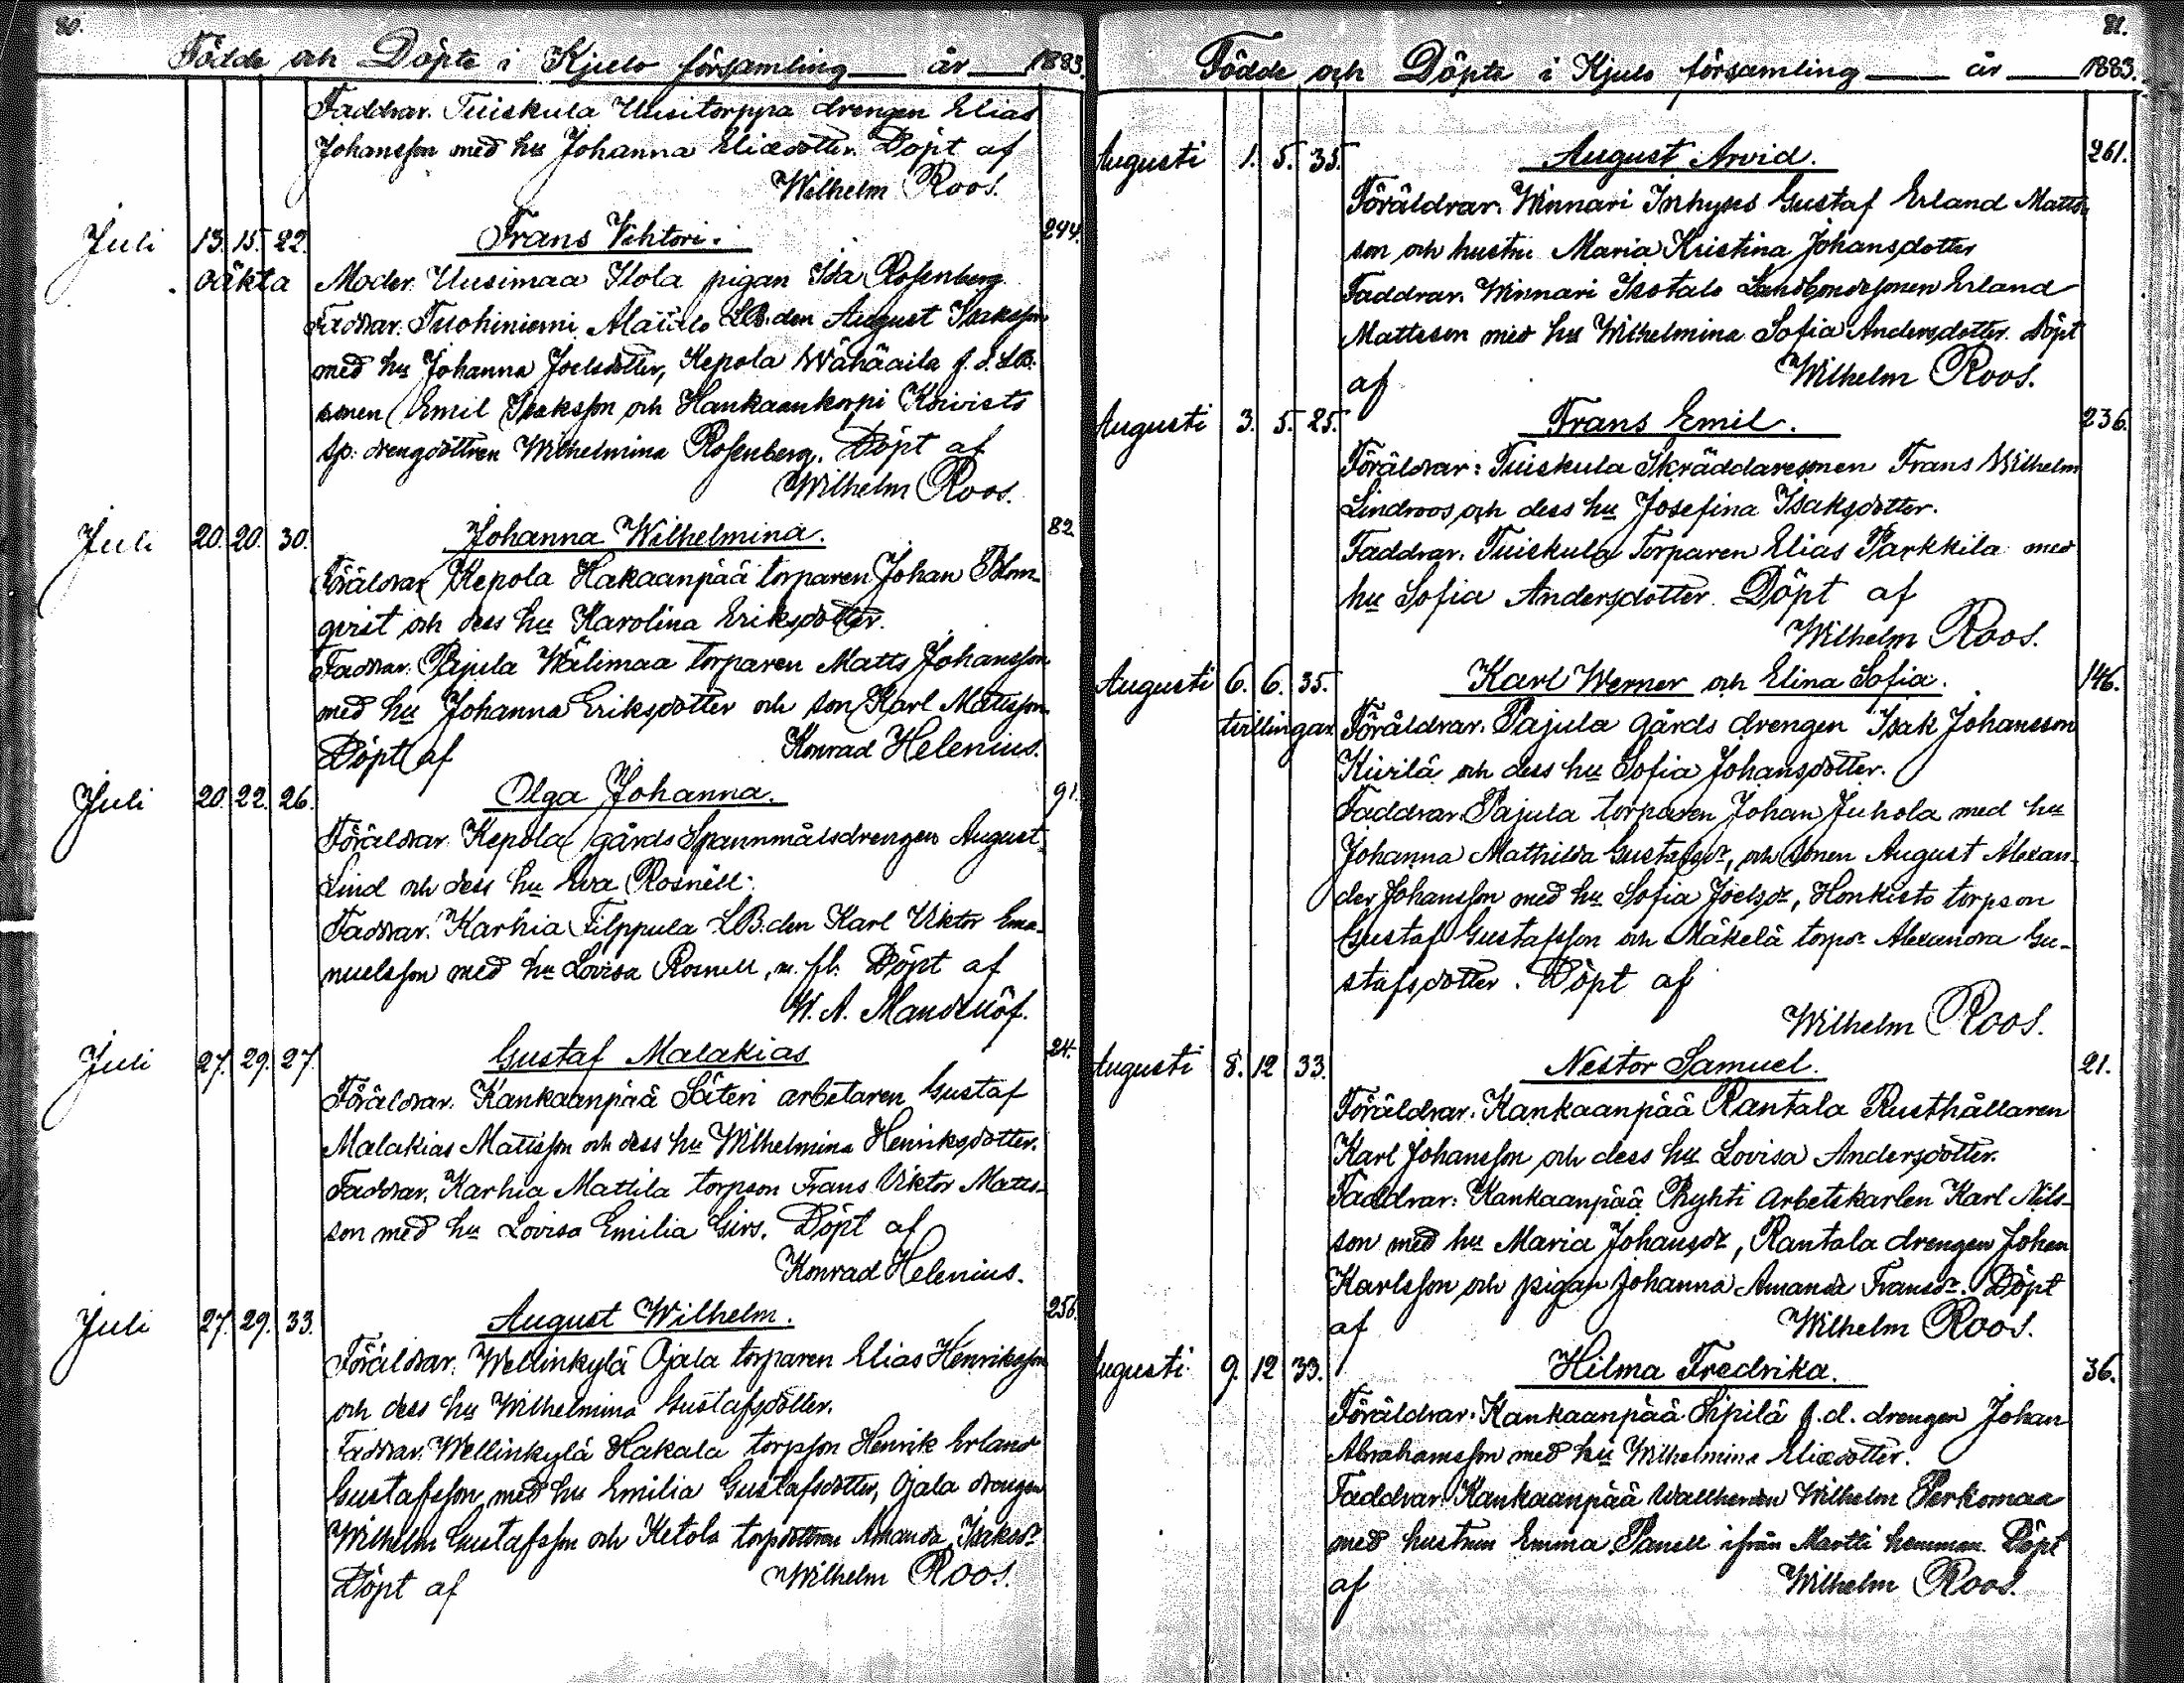 80.
Födde och Döpte i Kjulo församling år 1883.
Faddrar. Tuiskula Uusitorppa drengen Elias
Johansson med hu Johanna Eliædotter. Döpt af
Wilhelm Roos.
Juli 13. 15. 22. Frans Vihtori. 244.
oäkta Moder. Uusimaa Ilola pigan Ida Rosenberg.
Faddrar. Tuohiniemi Alatalo LB.den August Isaksson
med hu Johanna Joelsdotter, Kepola Wähäaila f. d. LB.
sonen Emil Isaksson och Hankaankorpi Koivisto
sp. drengdottren Wilhelmina Rosenberg. Döpt af
Wilhelm Roos.
Juli 20. 20. 30. Johanna Wilhelmina. 82.
Föräldrar Kepola Hakaanpää torparen Johan Blom-
qvist och dess hu Karolina Eriksdotter.
Faddrar. Pajula Wälimaa torparen Matts Johansson
med hu Johanna Eriksdotter och son Karl Mattsson.
Döpt af Konrad Helenius.
Juli 20. 22. 26. Olga Johanna. 91.
Föräldrar. Kepola gårds Spannmålsdrengen August
Lind och dess hu Eva Rosnell.
Faddrar. Karhia Filppula LB.den Karl Viktor Ema-
nuelsson med hu Lovisa Rosnell, m. fl. Döpt af
W. A. Mandellöf.
Juli 27. 29. 27. Gustaf Malakias 24.
Föräldrar. Kankaanpää Säteri arbetaren Gustaf
Malakias Mattsson och dess hu Wilhelmina Henriksdotter.
Faddrar. Karhia Mattila torpson Frans Viktor Matts-
son med hu Lovisa Emilia Girs. Döpt af
Konrad Helenius.
Juli 27. 29. 33. August Wilhelm. 256.
Föräldrar. Wellinkylä Ojala torparen Elias Henriksson
och dess hu Wilhelmina Gustafsdotter.
Faddrar. Wellinkylä Hakala torpson Henrik Erland
Gustafsson med hu Emilia Gustafsdotter, Ojala drengen
Wilhelm Gustafsson och Ketola torpdottren Amanda Isaksdr
Döpt af Wilhelm Roos.
81.
Födde och Döpte i Kjulo församling år 1883.
Augusti 1. 5. 35. August Arvid. 261.
Föräldrar. Winnari Inhyses Gustaf Erland Matts-
son och hustru Maria Kristina Johansdotter
Faddrar. Winnari Isotalo Landbondesonen Erland
Mattsson med hu Wilhelmina Sofia Andersdotter. Döpt
af Wilhelm Roos.
Augusti 3. 5. 25. Frans Emil. 236.
Föräldrar: Tuiskula Skräddaresonen Frans Wilhelm
Lindroos och dess hu Josefina Isaksdotter.
Faddrar. Tuiskula Torparen Elias Parkkila med
hu Sofia Andersdotter. Döpt af
Wilhelm Roos.
Augusti 6. 6. 35. Karl Werner och Elina Sofia. 146.
tvillingar. Föräldrar. Pajula gårds drengen Isak Johansson
Kivilä och dess hu Sofia Johansdotter.
Faddrar. Pajula torparen Johan Juhola med hu
Johanna Mathilda Gustafsdr, och sonen August Alexan-
der Johansson med hu Sofia Joelsdr, Honkisto torpson
Gustaf Gustafsson och Mäkelä torpdr Alexandra Gu-
stafsdotter. Döpt af
Wilhelm Roos.
Augusti 8. 12 33. Nestor Samuel. 21.
Föräldrar. Kankaanpää Rantala Rusthållaren
Karl Johansson och dess hu Lovisa Andersdotter.
Faddrar: Kankaanpää Ryhti Arbetskarlen Karl Nils-
son med hu Maria Johansdr, Rantala drengen Johan
Karlsson och pigan Johanna Amanda Fransdr. Döpt
af Wilhelm Roos.
Augusti 9. 12 33. Hilma Fredrika. 36.
Föräldrar. Kankaanpää Sipilä f.d. drengen Johan
Abrahamsson med hu Wilhelmina Eliædotter.
Faddrar. Kankaanpää Wallherden Wilhelm Perkomaa
med hustrun Emma Panell ifrån Martti hemman. Döpt
af Wilhelm Roos.